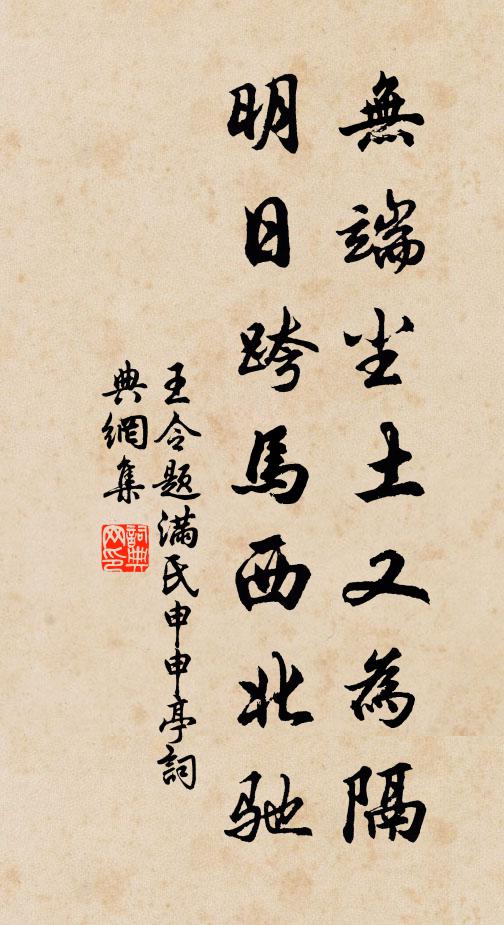 無端尘土又為隔
明日跨馬西北馳
王令题滿氏申申亭詞
典網集
詞典
网印